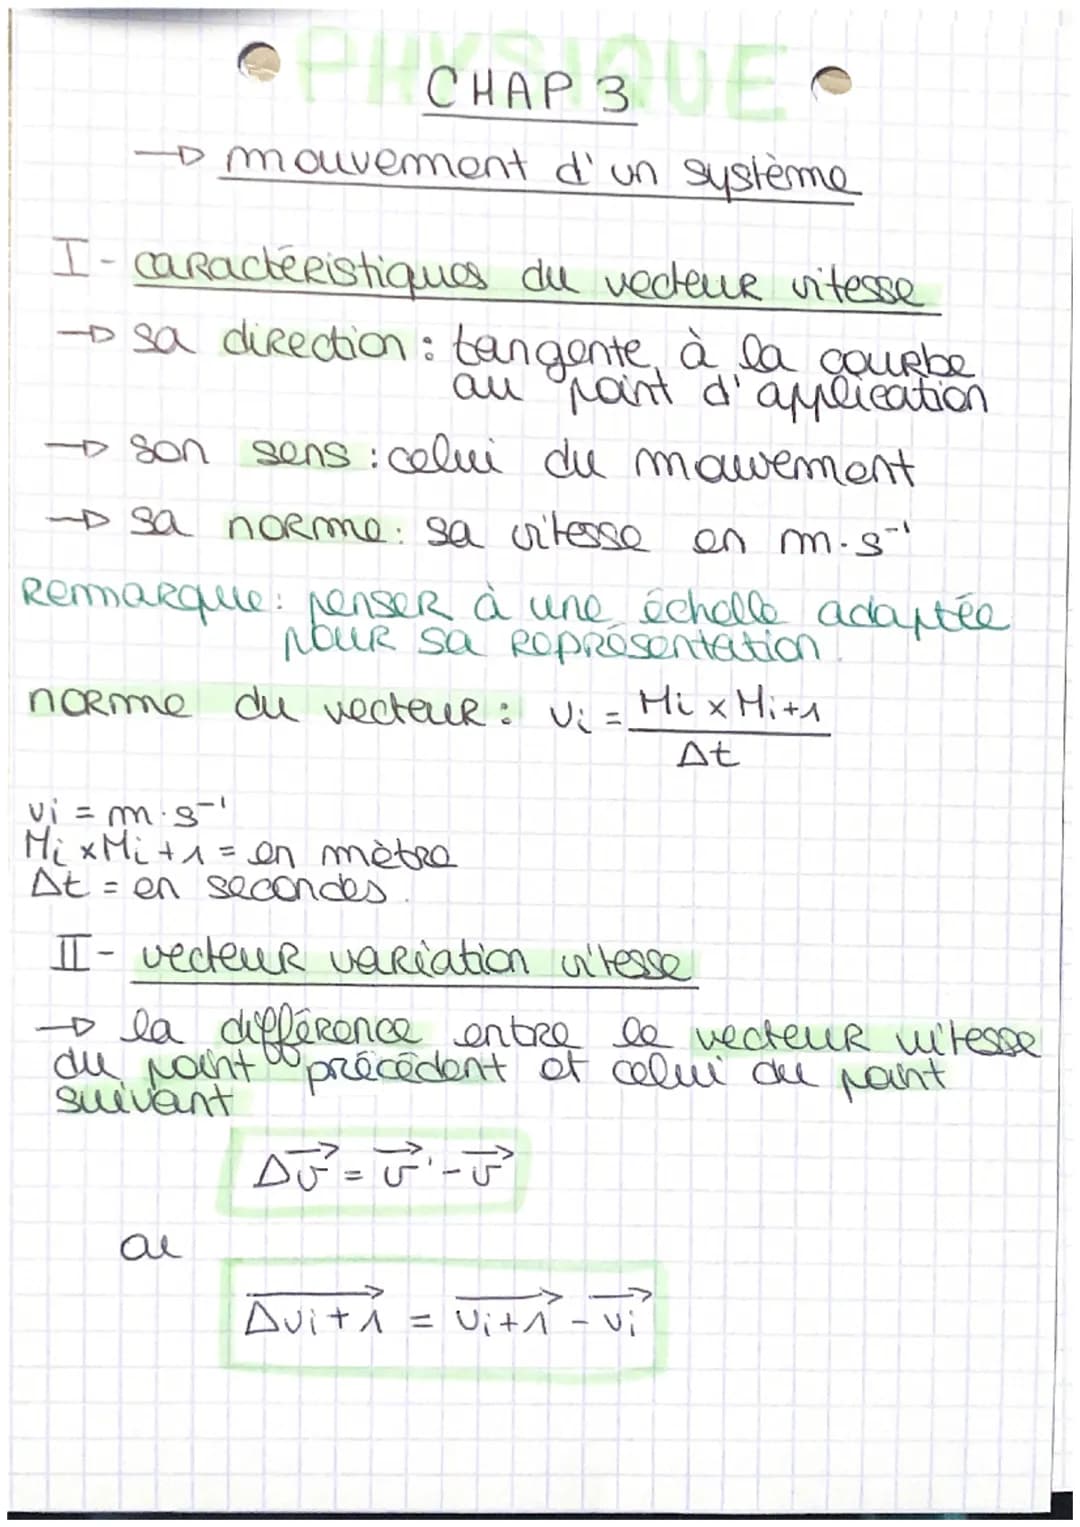 PHYSIQUE
CHAP 3
→ mouvement d'un système
I - caractéristiques du vecteur vitesse
→ sa direction : tangente à la courbe
au point d'application
→ son sens : celui du mouvement
→ sa norme : sa vitesse en m.s⁻¹
Remarque : penser à une échelle adaptée
pour sa représentation.
norme du vecteur : vi = Mi x Mi+1 / Δt
vi = m.s⁻¹
Mi x Mi+1 = en mètre
Δt = en secondes.
II - vecteur variation vitesse
→ la différence entre le vecteur vitesse
du point précédent et celui du point
suivant
Δv⃗ = v⃗' - v⃗
ou
Δvi+1⃗ = vi+1⃗ - vi⃗